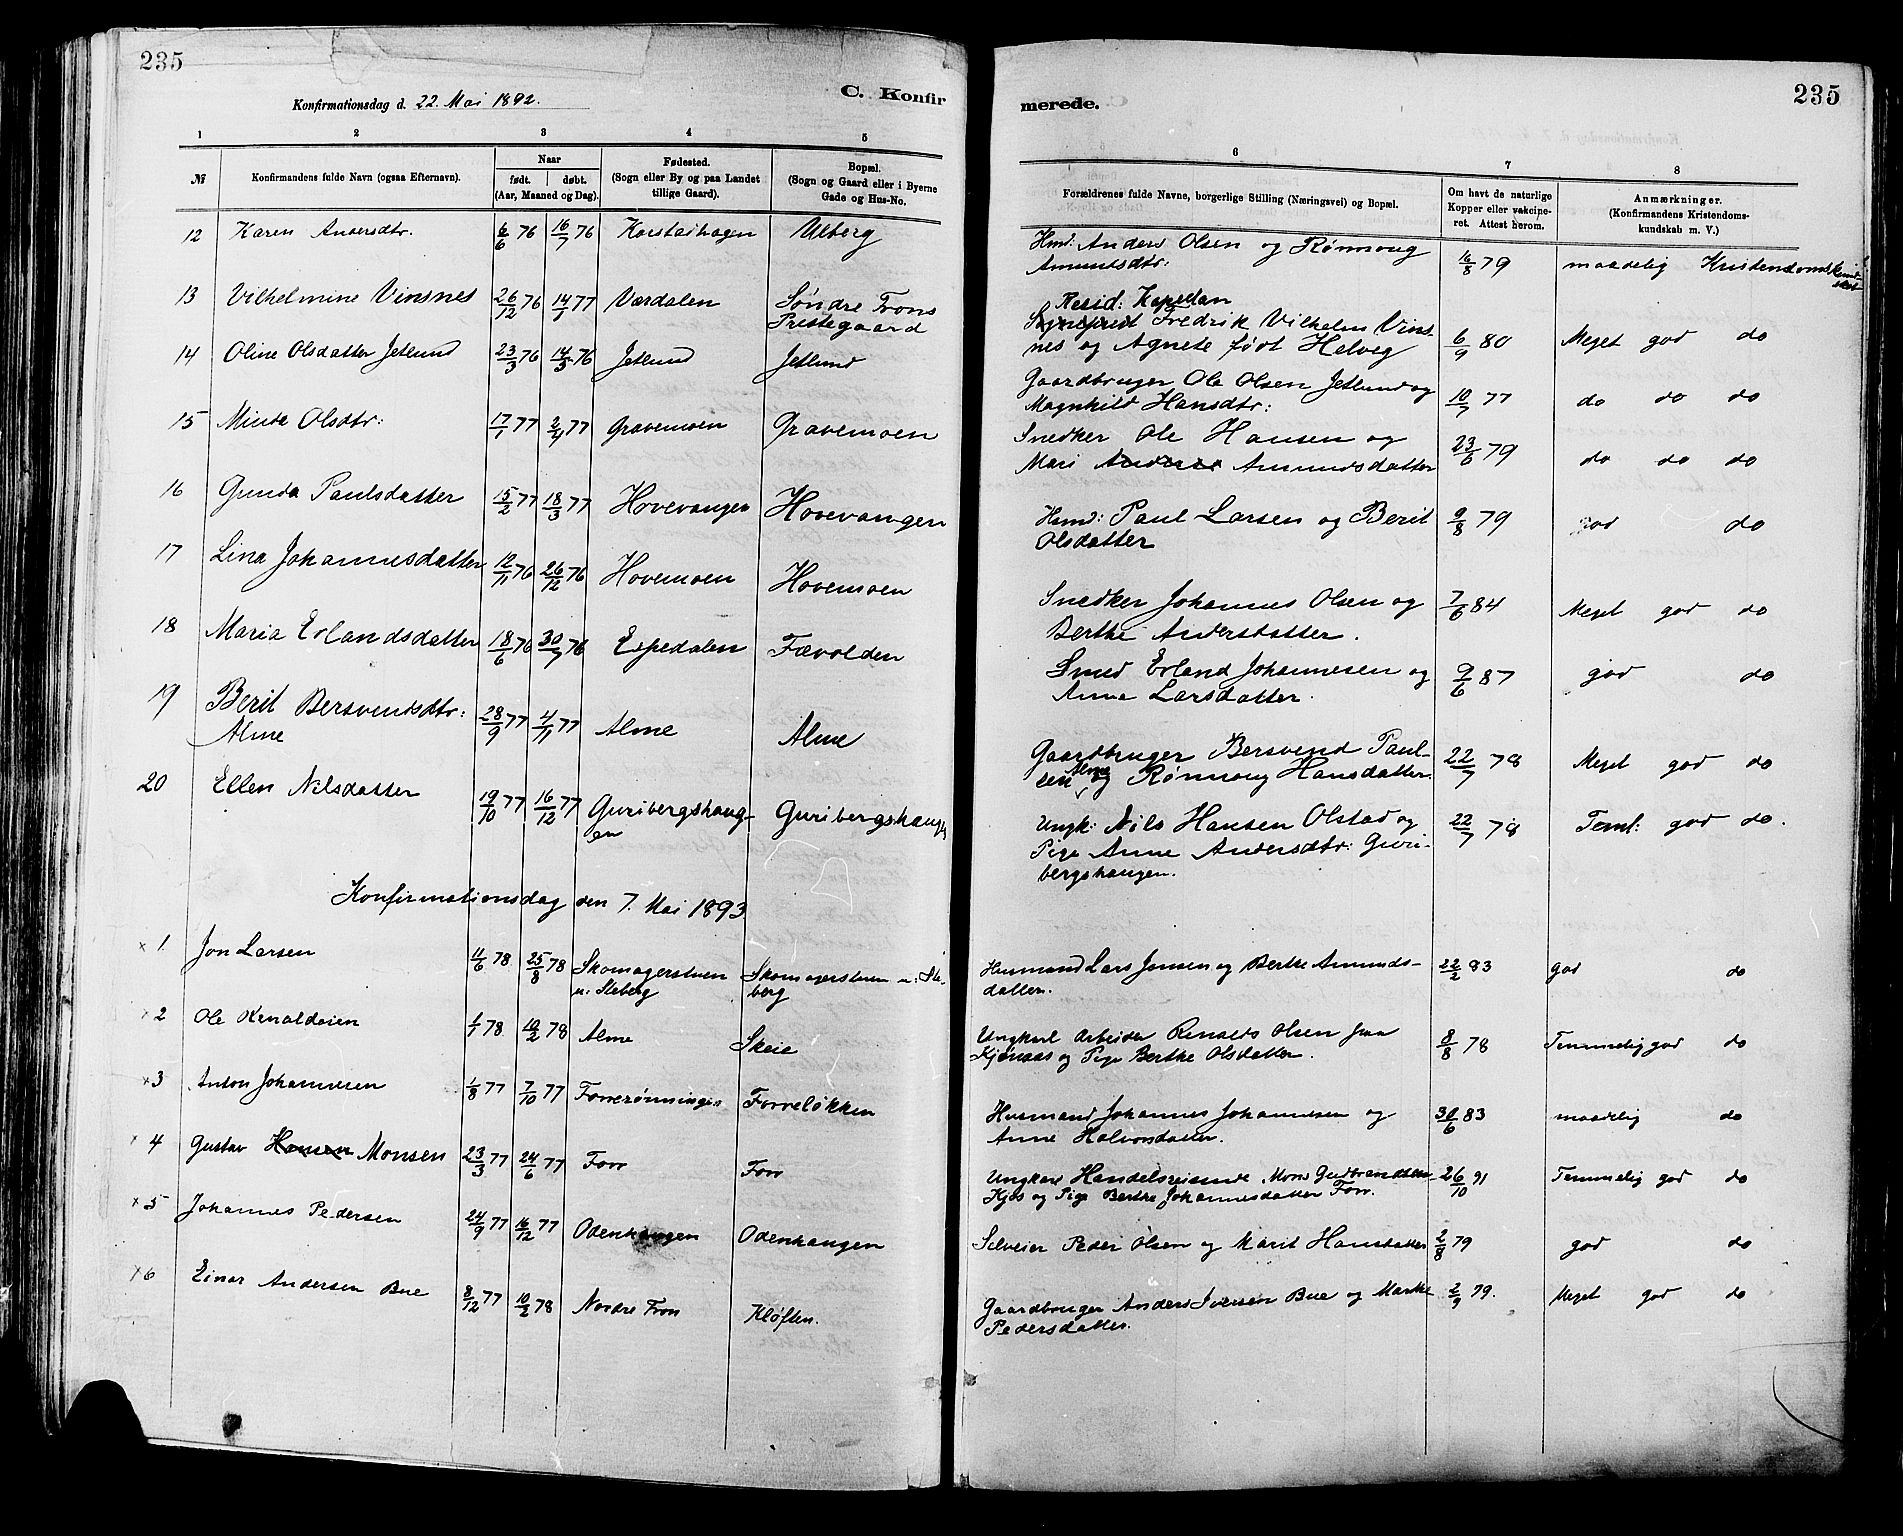 235
Konfirmationsdag d. 22. Mai 1892.
C. Konfir
merede.
235
1 2 3 4 5 6 7 8
№
Konfirmandens fulde Navn (ogsaa Efternavn).
Naar
født. døbt.
(Aar, Maaned og Dag).
Fødested.
(Sogn eller By og paa Landet
tillige Gaard).
Bopæl.
(Sogn og Gaard eller i Byerne
Gade og Hus-No.
Forældrenes fulde Navne, borgerlige Stilling (Næringsvei) og Bopæl.
Om havt de naturlige
Kopper eller vakcine-
ret. Attest herom.
Anmærkninger.
(Konfirmandens Kristendoms-
kundskab m. V.)
12 Karen Andersdtr. 6/6 76 16/7 76 Korstadhagen Ulberg Hmd: Anders Olsen og Rønnoug
Amundsdtr: 16/8 79 maadelig Kristendomskund-
skab
13 Vilhelmine Vinsnes 26/12 76 14/1 77 Værdalen Søndre Frons
Prestegaard Resid: Kapellan
Fredrik Vilhelm Vins-
nes og Agnete født Helveg 6/9 80 Meget god do
14 Oline Olsdatter Jetlund 23/3 76 14/5 76 Jetlund Jetlund Gaardbruger Ole Olsen Jetlund og
Magnhild Hansdtr: 10/7 77 do do do
15 Minda Olsdtr: 17/1 77 2/4 77 Gravemoen Gravemoen Snedker Ole Hansen og
Mari Amundsdatter 23/6 79 do do do
16 Gunda Paulsdatter 15/2 77 18/3 77 Hovevangen Hovevangen Hsmd: Paul Larsen og Berit
Olsdatter 9/8 79 god do
17 Lina Johannesdatter 12/11 76 26/12 76 Hovemoen Hovemoen Snedker Johannes Olsen og
Berthe Andersdatter. 7/6 84 Meget god do
18 Maria Erlandsdatter 18/6 76 30/7 76 Espedalen Fævolden Smed Erland Johannesen og
Anne Larsdatter. 9/6 87 god do
19 Berit Bersvendsdtr:
Alme 28/9 77 4/11 77 Alme Alme Gaardbruger Bersvend Paul-
sen Alme og Rønnoug Hansdatter. 22/7 78 Meget god do
20 Ellen Nilsdatter 19/10 77 16/12 77 Guribergshaug-
en Guribergshaugen Ungk: Nils Hansen Olstad og
Pige Anne Andersdtr: Guri-
bergshaugen. 22/7 78 Teml: god do.
Konfirmationsdag den 7. Mai 1893
x 1. Jon Larsen 11/6 78 25/8 78 Skomagerstuen
u. Steberg Skomagerstuen u: Ste-
berg Husmand Lars Jonsen og Berthe Amunds-
datter. 22/2 83 god do
x 2 Ole Renaldsen 1/1 78 10/2 78 Alme Skeie Ungkarl Arbeider Renalds Olsen fra
Kjønaas og Pige Berthe Olsdatter. 8/8 78 Temmelig god do
x 3 Anton Johannesen 1/8 77 7/10 77 Forrerønningen Forreløkken Husmand Johannes Johannesen og
Anne Halvorsdatter. 30/6 83 maadelig do
x 4 Gustav Hansen Monsen 23/3 77 24/6 77 Forr Forr Ungkarl Handelsreisende Mons Gudbrandsen
Kjøs og Pige Berthe Johannesdatter Forr. 26/10 91 Temmelig god do
x 5 Johannes Pedersen 24/9 77 16/12 77 Odenhaugen Odenhaugen Selveier Peder Olsen og Marit Hansdatter 2/8 79 god do
x 6 Einar Andersen Bue 8/12 77 10/2 78 Nordre Fron Kløften. Gaardbruger Anders Iversen Bue og Marthe
Pedersdatter. 2/9 79. Meget god do